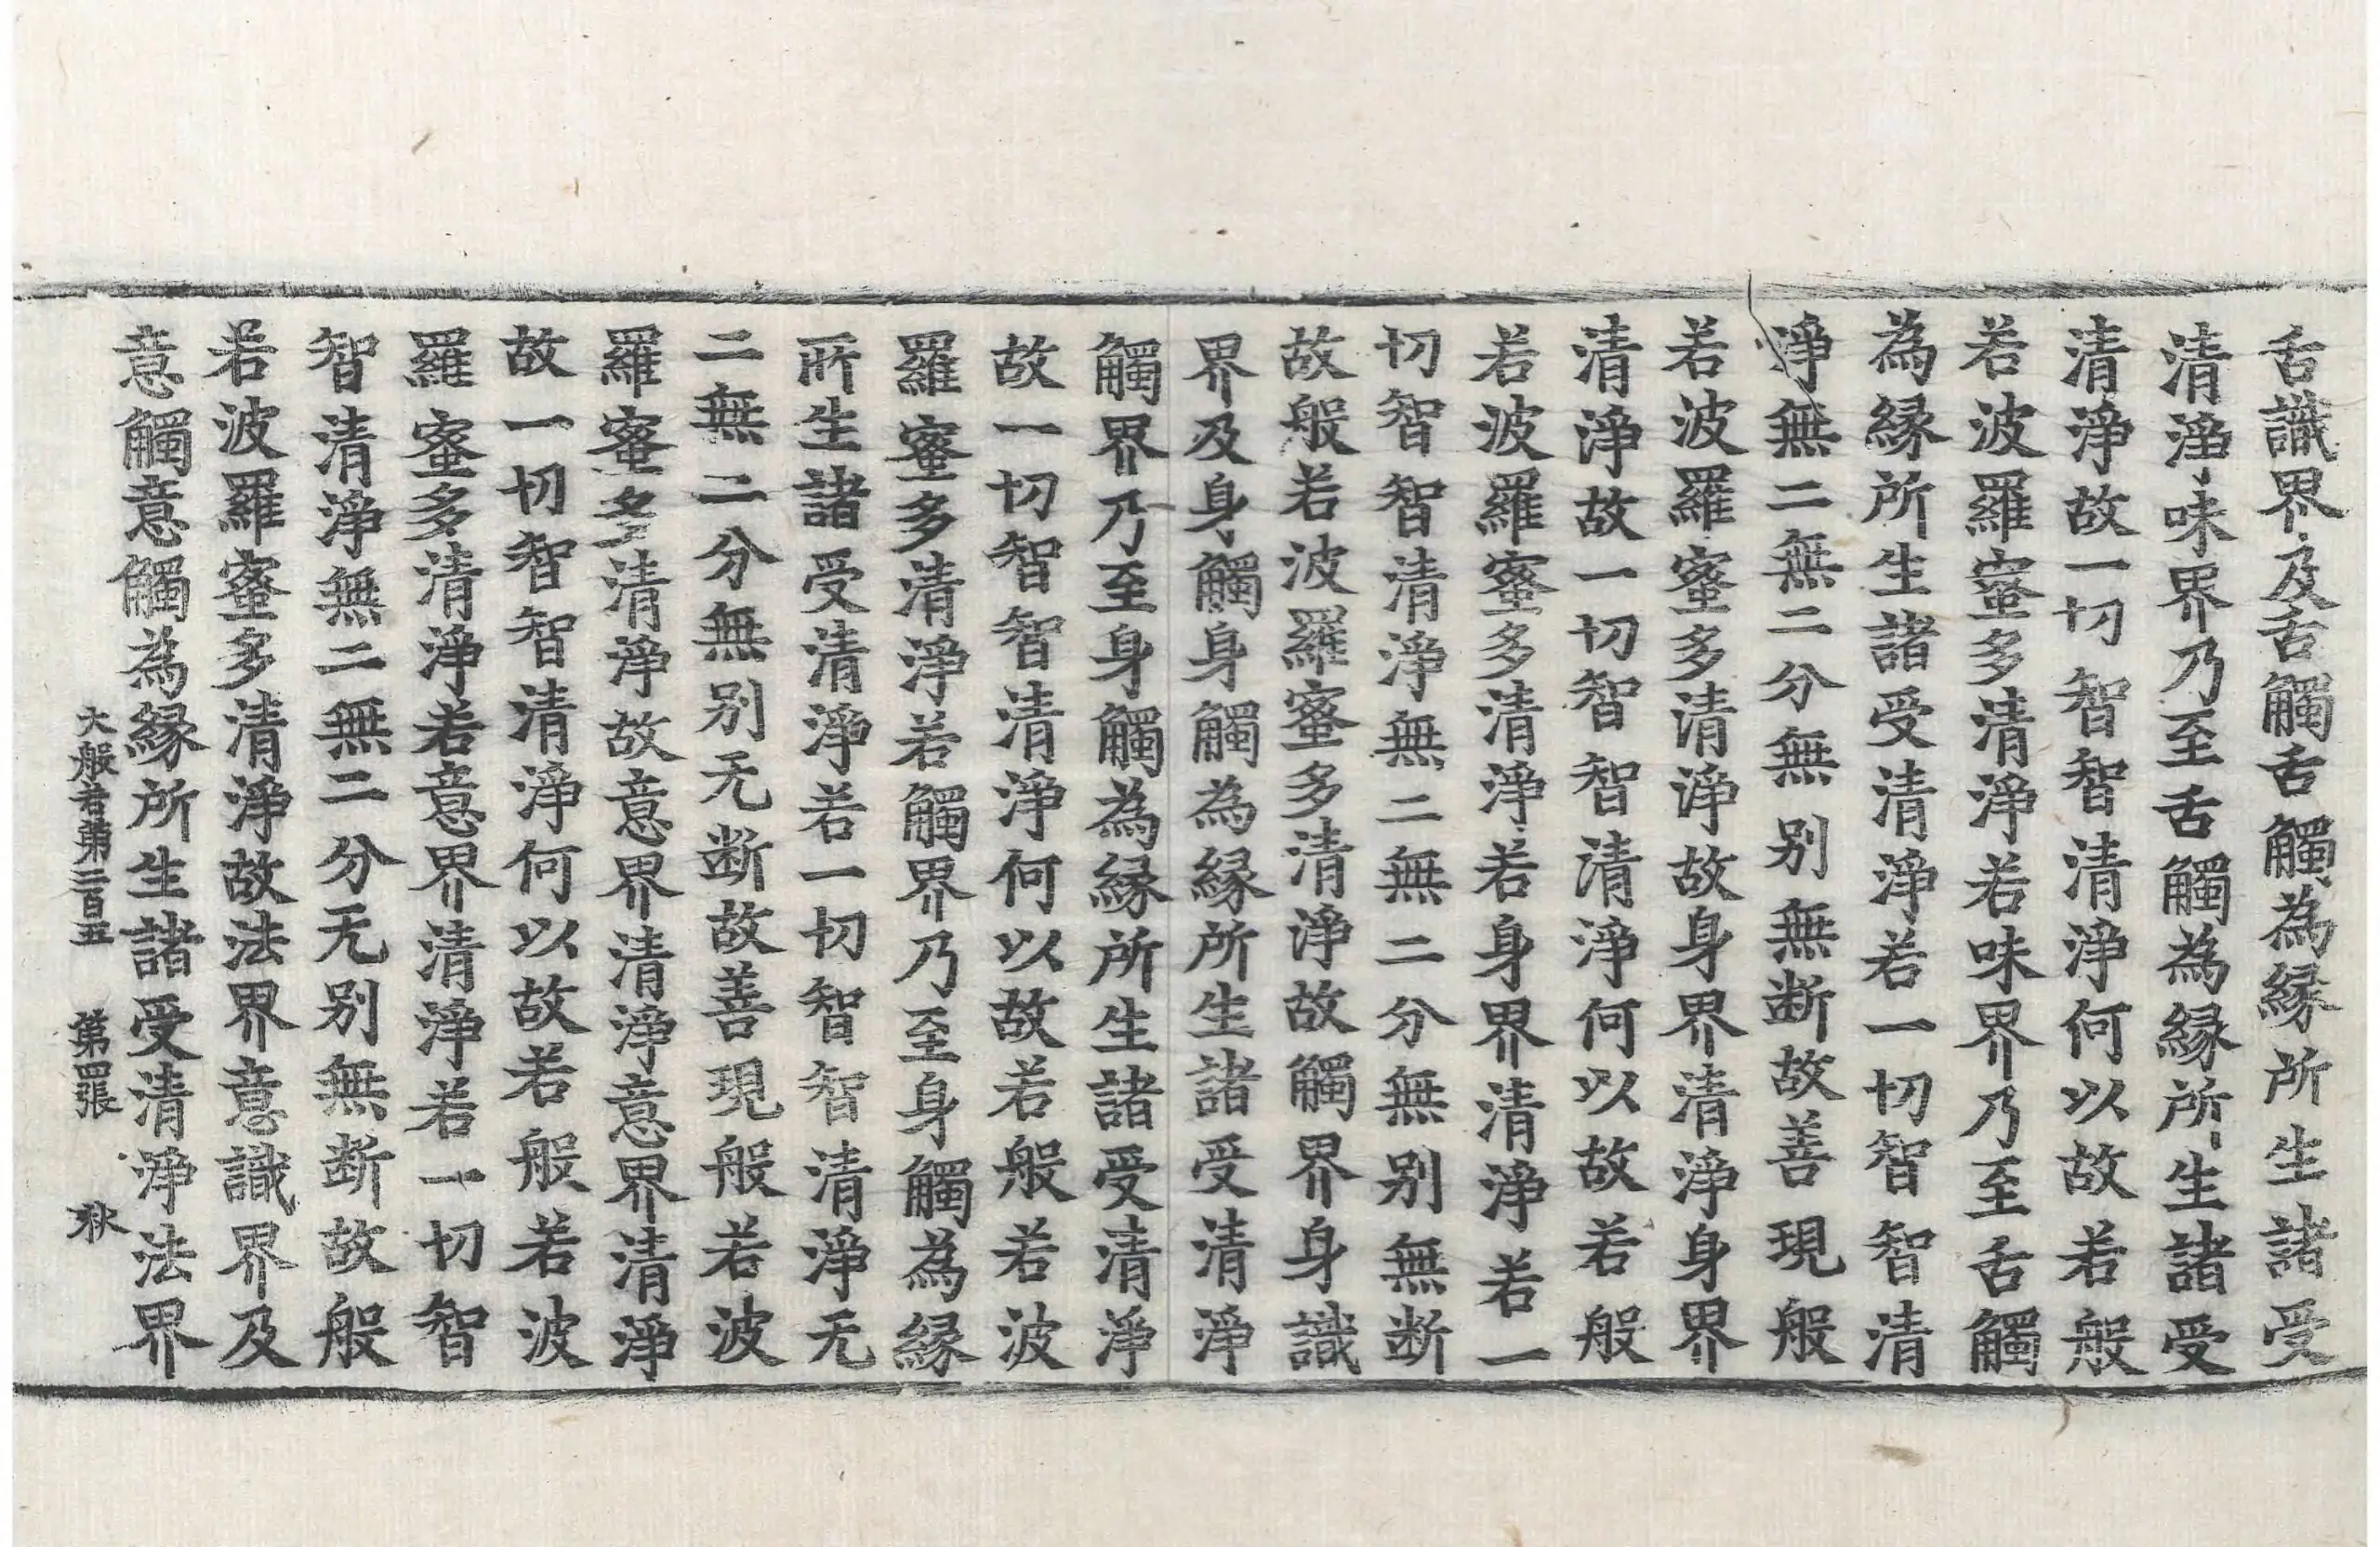 舌識界及舌觸舌觸為縁所生諸受
清淨味界乃至舌觸為縁所生諸受
清淨故一切智智清淨何以故若般
若波羅蜜多清淨若味界乃至舌觸
為縁所生諸受清淨若一切智智清
淨無二無二分無別無断故善現般
若波羅蜜多清淨故身界清淨身界
清淨故一切智智清淨何以故若般
若波羅蜜多清淨若身界清淨若一
切智智清淨無二無二分無别無断
故般若波羅蜜多清淨故觸界身識
界及身觸身觸為縁所生諸受清淨
觸界乃至身觸為縁所生諸受清淨
故一切智智清淨何以故若般若波
羅蜜多清淨若觸界乃至身觸為縁
所生諸受清淨若一切智智清淨无
二無二分無别无断故善現般若波
羅蜜多清淨故意界清淨意界清淨
故一切智智清淨何以故若般若波
羅蜜多清淨若意界清淨若一切智
智清淨無二無二分无别無断故般
若波羅蜜多清淨故法界意識界及
意觸意觸為縁所生諸受清淨法界
大般若第二百五 第四張 秋